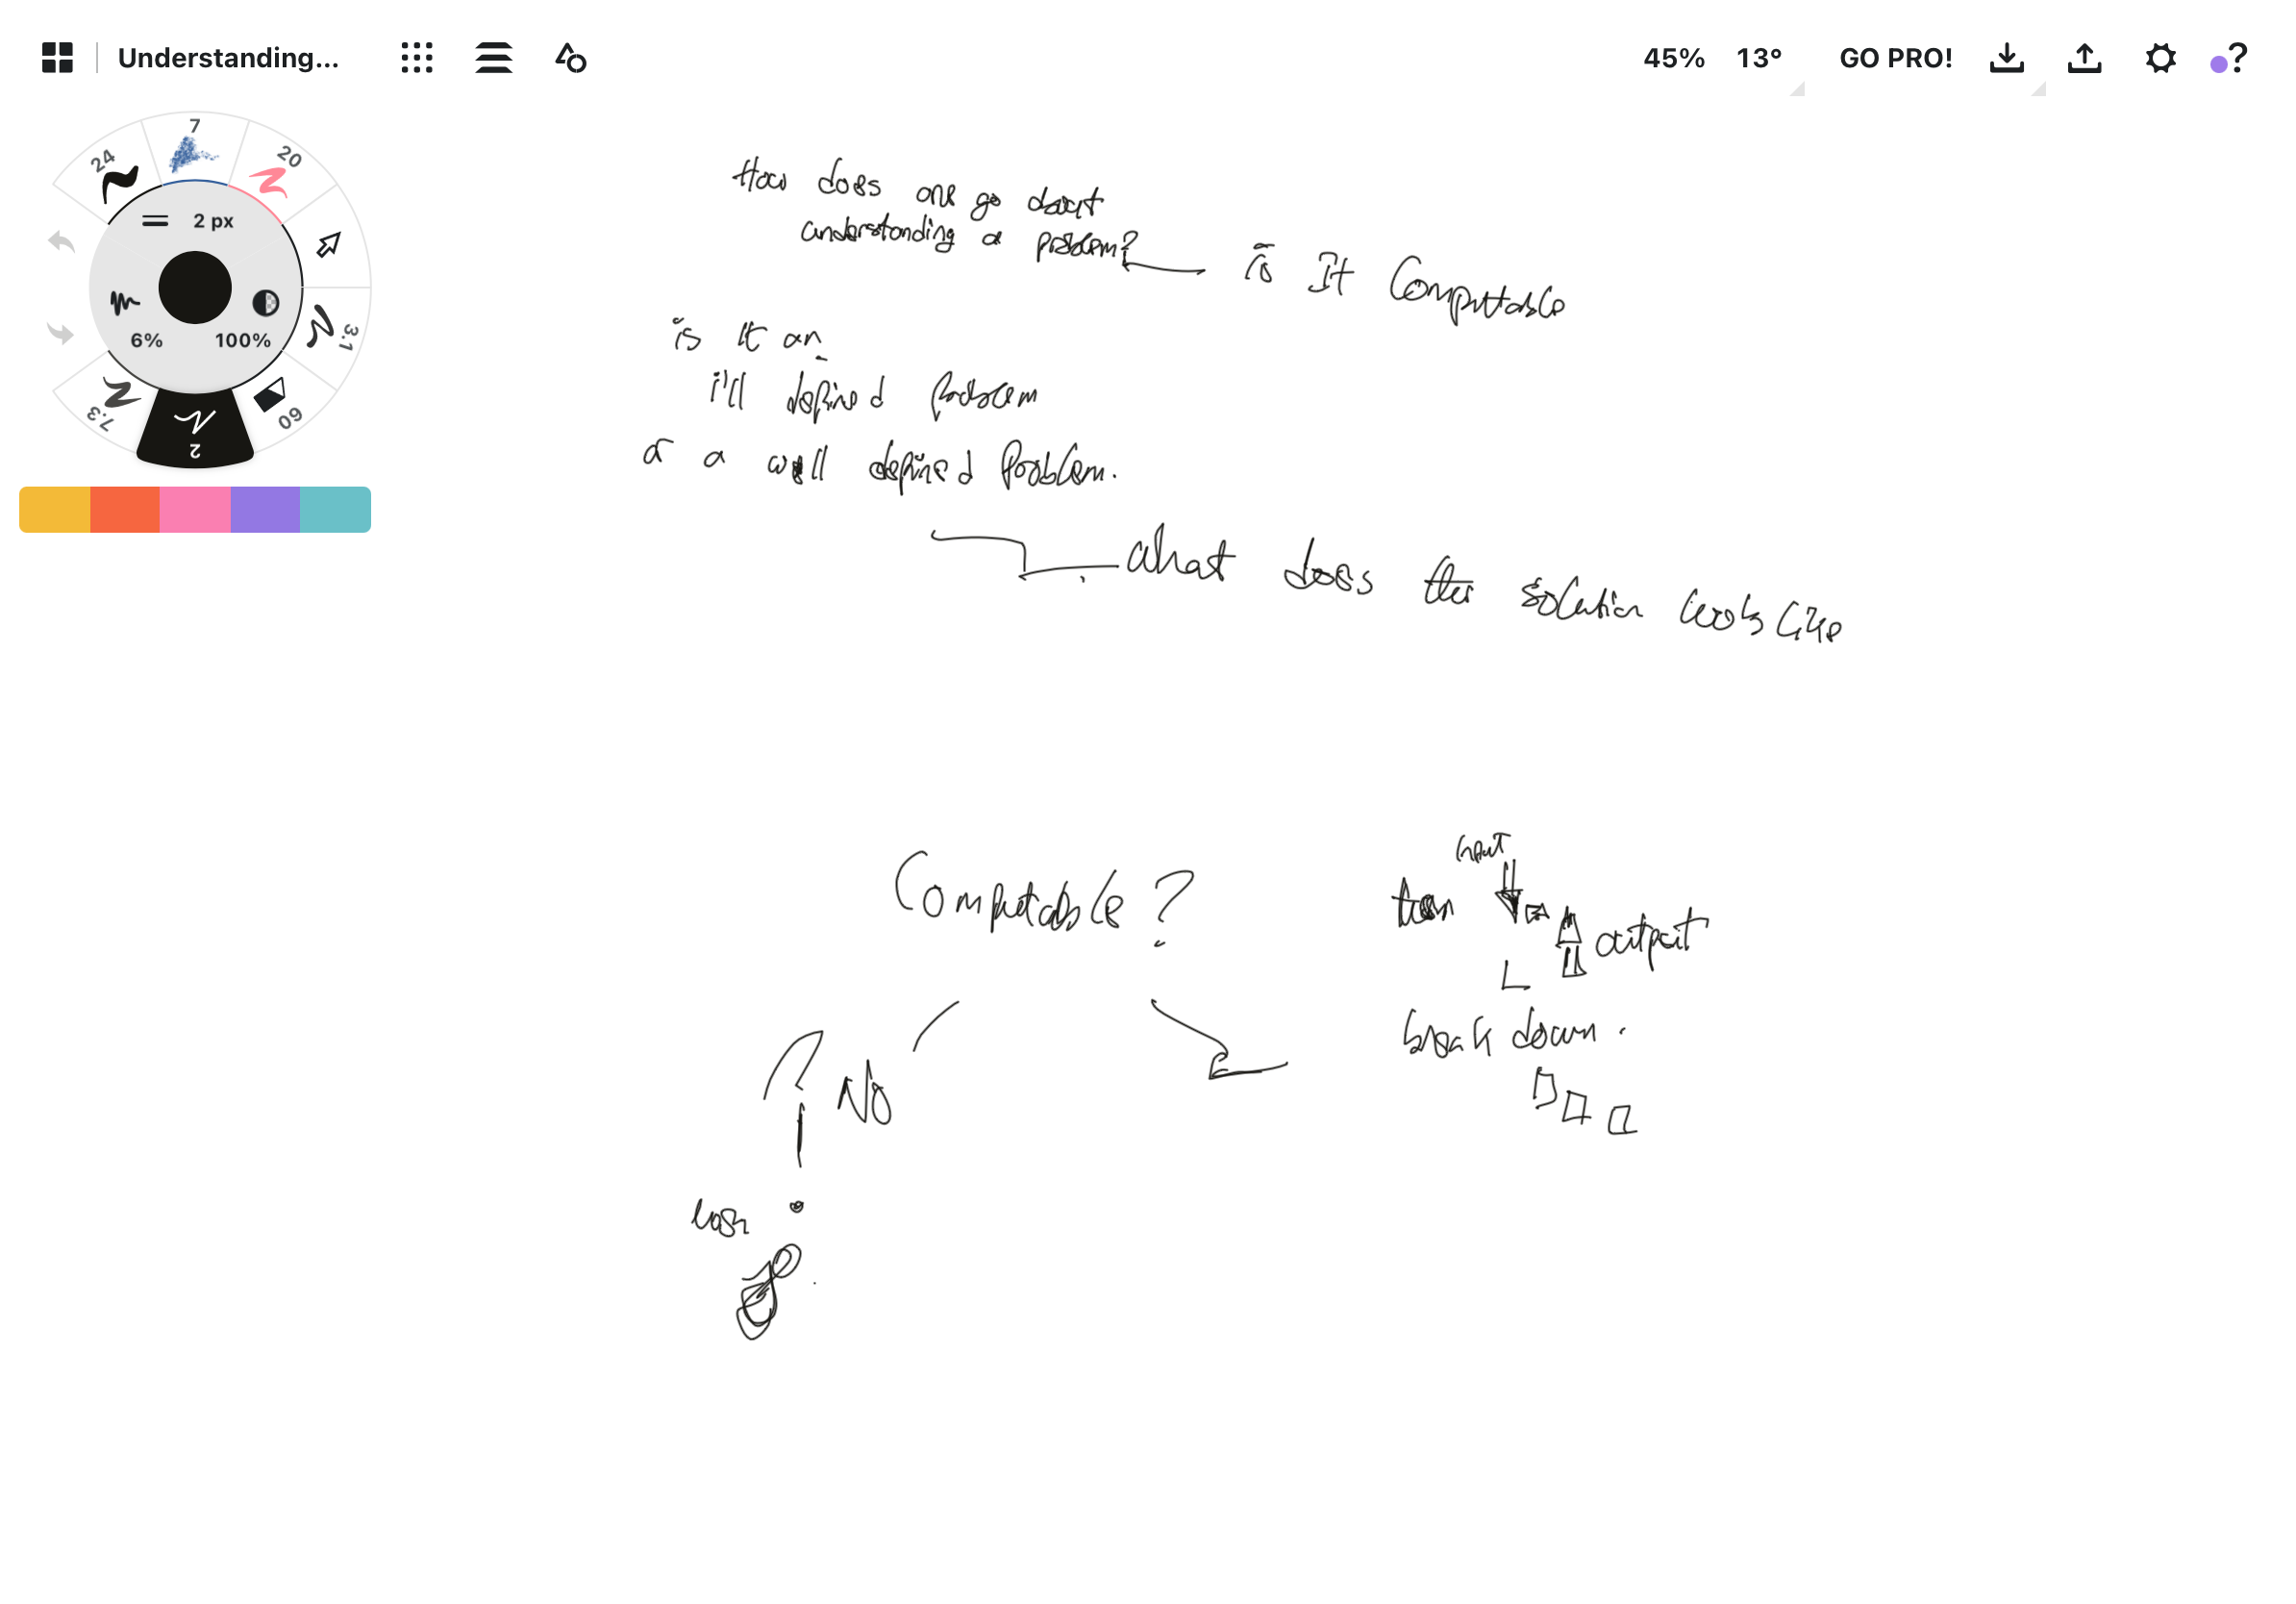 Understanding...
45% 13° GO PRO!
7
24
20
2 px
3.1
6% 100%
7.3
60
2
How does one go about
understanding a problem?
is It Computable
is it an
ill defined problem
or a well defined Problem.
what does the solution looks like
Computable?
input
output
break down.
No